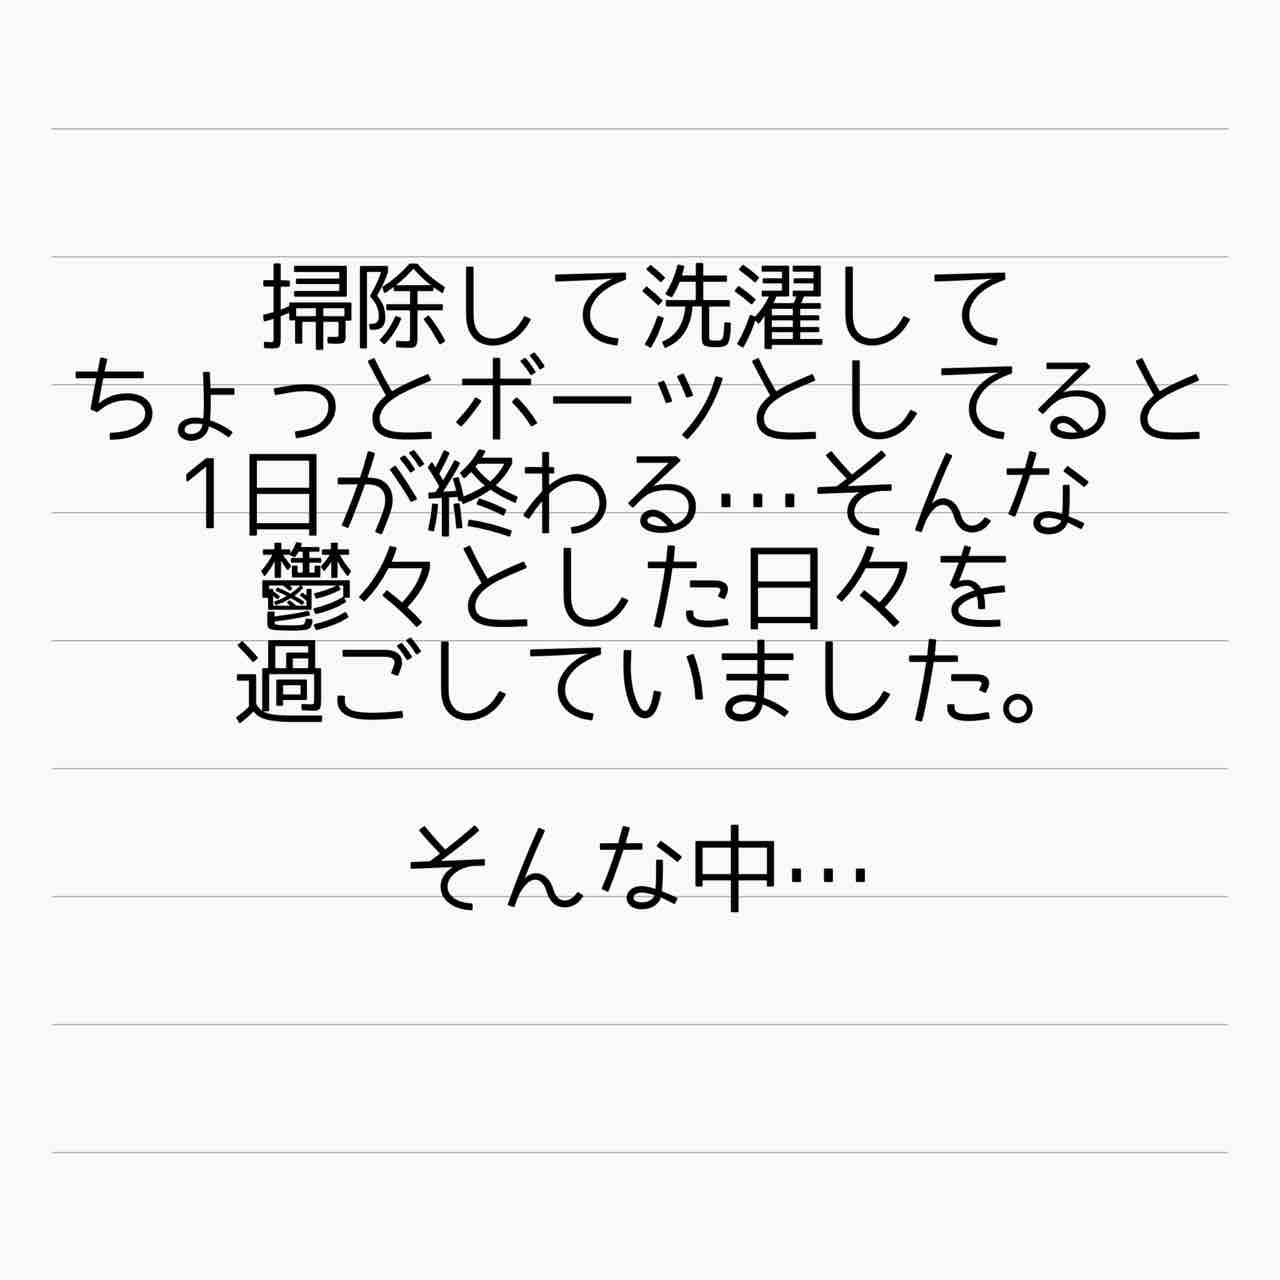 掃除して洗濯して
ちょっとボーッとしてると
1日が終わる…そんな
鬱々とした日々を
過ごしていました。
そんな中…